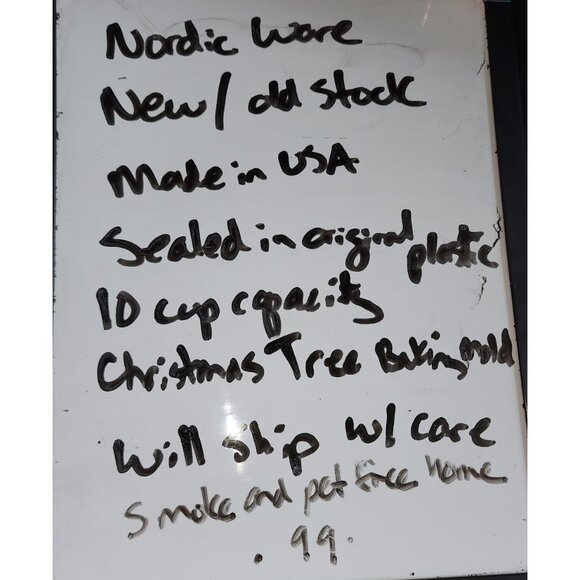 Nordic Ware
New / old stock
Made in USA
Sealed in original plastic
10 cup capacity
Christmas Tree Baking mold
Will ship w/ care
Smoke and pet free home
. 99.